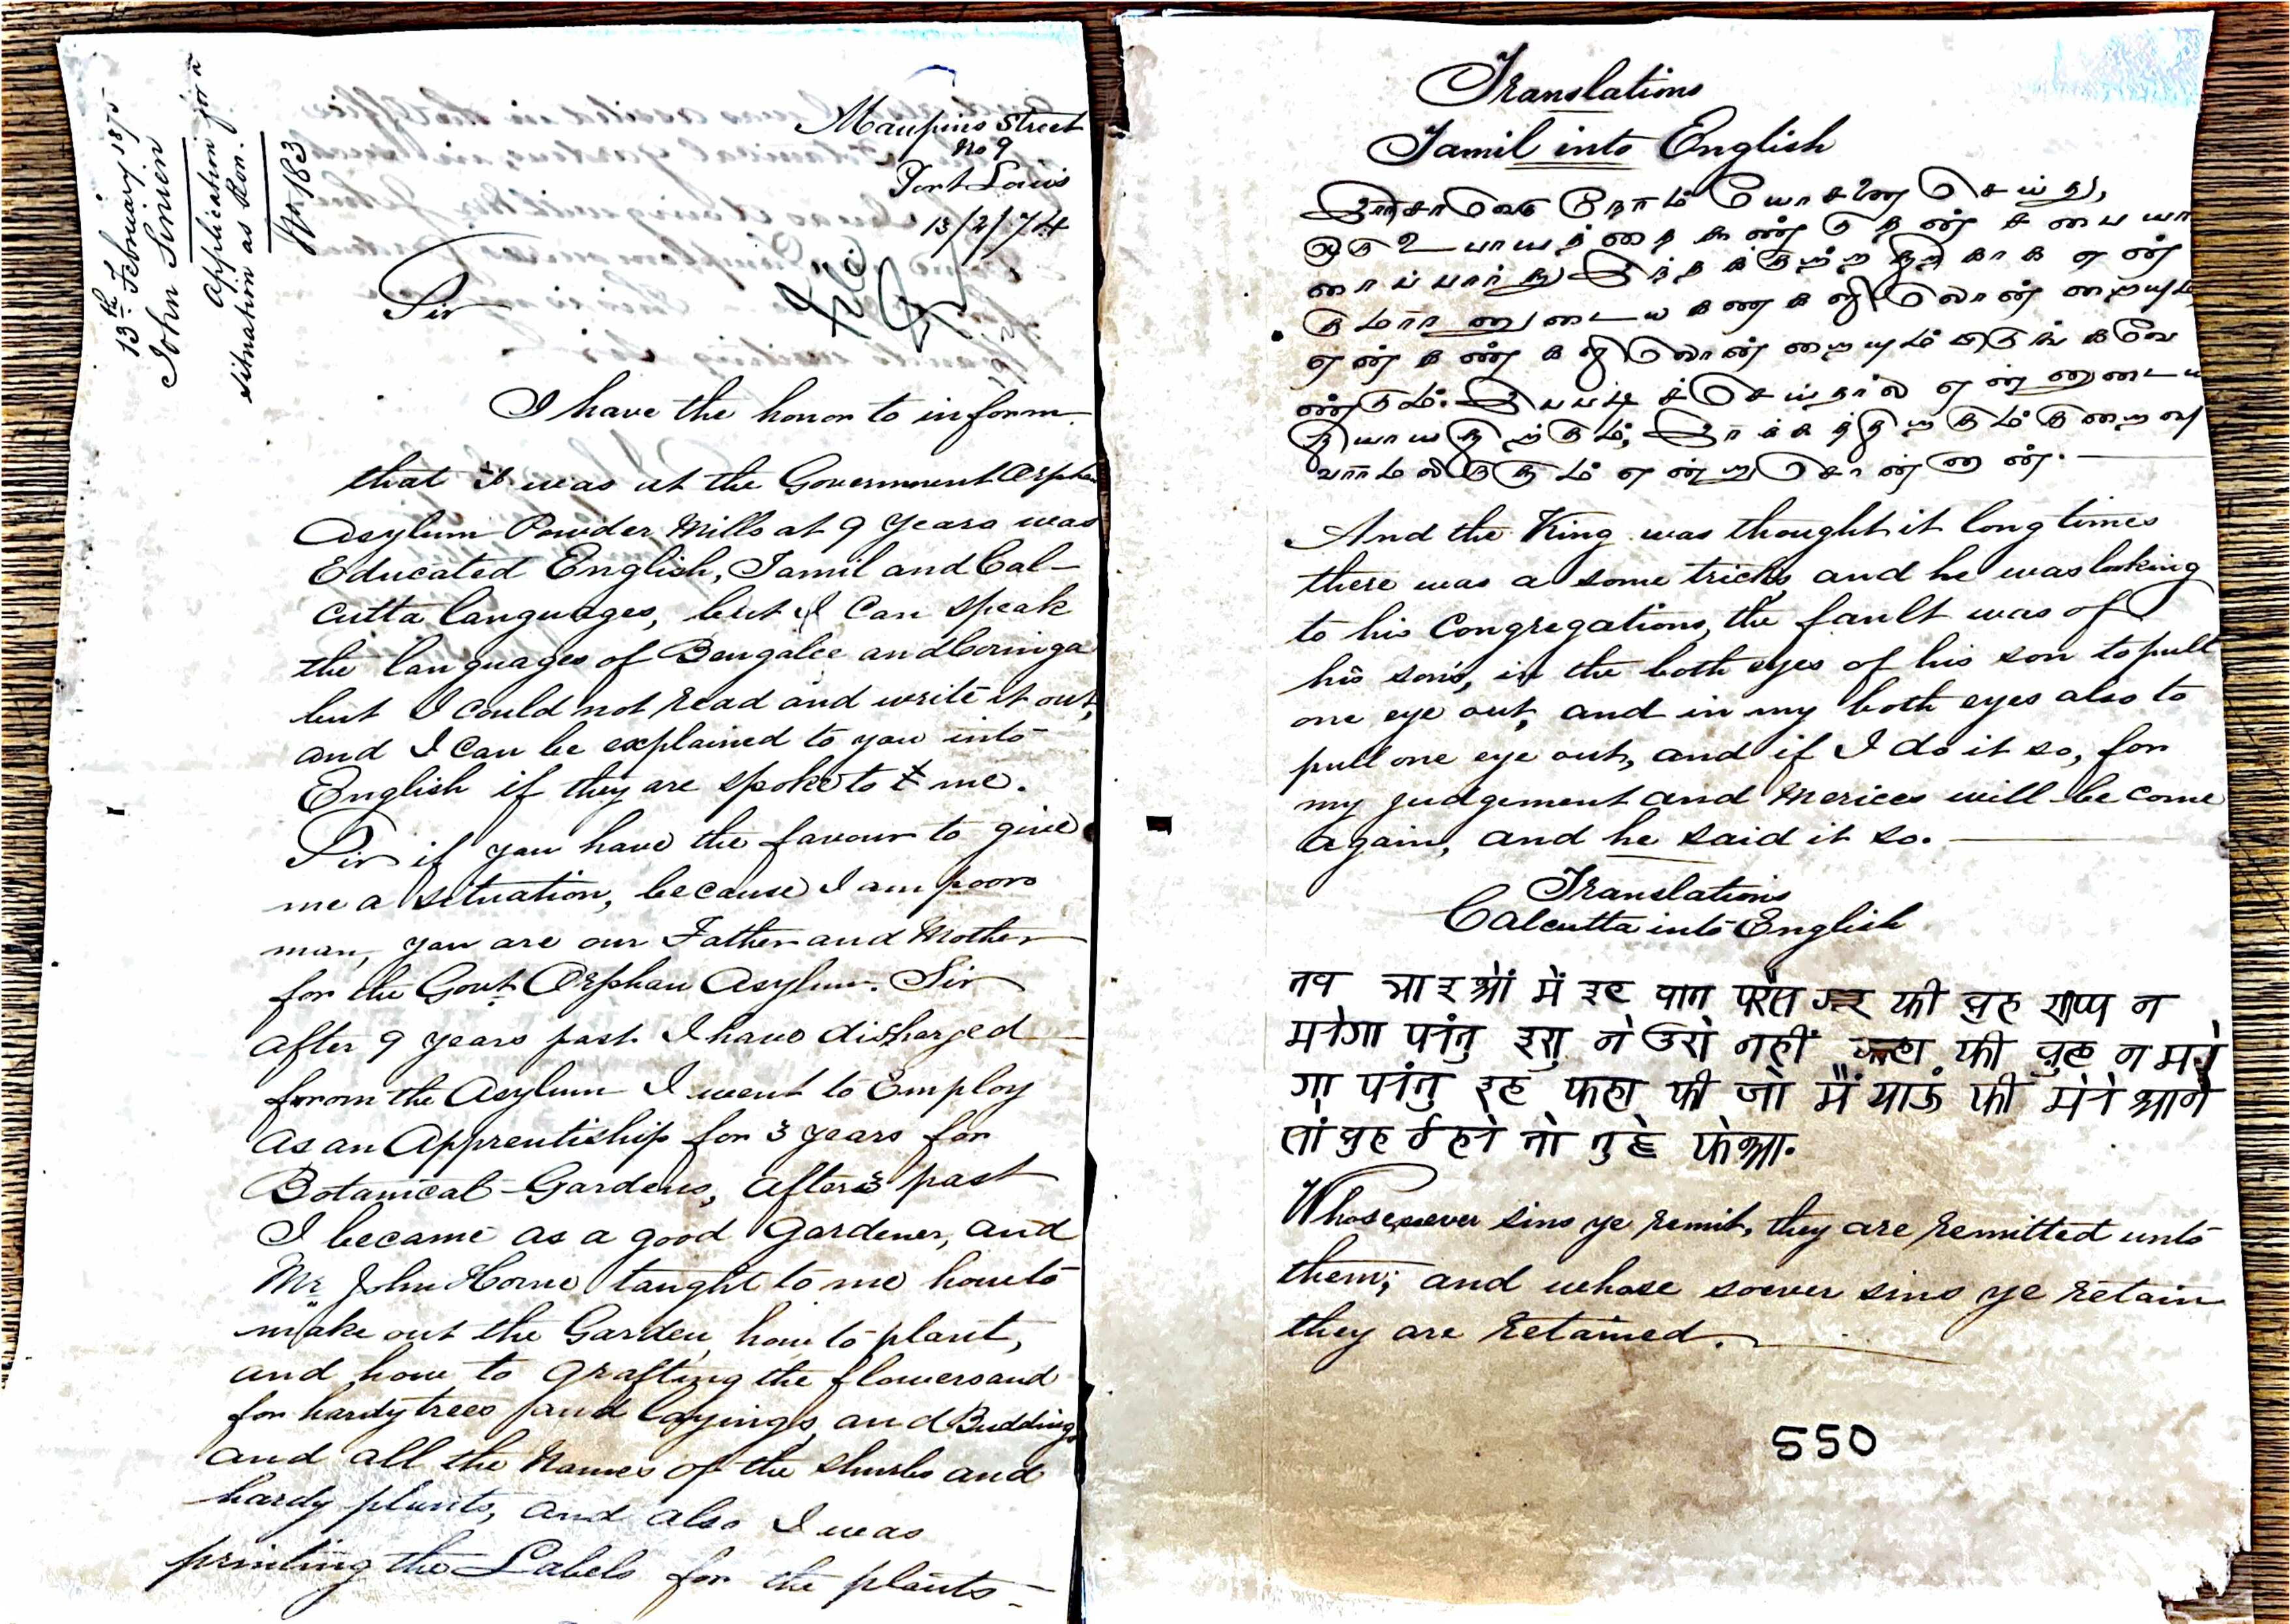 13th February 1875
John Sinien
Application for a
situation as Ron.
No 183
Maupins Street
No 9
Port Louis
13/2/74
Sir
I have the honor to inform
that I was at the Government Orphan
Asylum Powder Mills at 9 years was
Educated English, Tamil and Cal-
cutta languages, but I can speak
the languages of Bengalee and Coringa
but I could not read and write it out,
and I can be explained to you into
English if they are spoke to me.
Sir if you have the favour to give
me a situation, because I am poor
man, you are our Father and Mother
for the Govt Orphan Asylum. Sir
after 9 years past I have discharged
from the Asylum I went to Employ
as an Apprentiship for 3 years for
Botanical Gardens, after 3 past
I became as a good Gardener, and
Mr John Horne taught to me how to
make out the Garden, how to plant,
and how to grafting the flowers and
for hardy trees and layings, and Buddings
and all the Names of the shurbs and
hardy plants, and also I was
printing the Labels for the plants -
Translations
Tamil into English
இராசாவெகு நேரம் யோசனை செய்து,
ஒரு உபாயத்தை கண்டு தன் சபையா
ரைப்பார்த்து இந்தக்குற்றத்துக்காக என்
குமாரனுடைய கண்களிலொன்றையும்
என் கண்களிலொன்றையும் பிடுங்கவே
ண்டும். இப்படிச்செய்தால் என்னுடைய
நியாயதிற்கும், இரக்கத்திற்கும் குறைவு
வாராமலிருக்கும் என்று சொன்னான்.
And the King was thought it long times
there was a some tricks, and he was looking
to his Congregations, the fault was of
his son's, in the both eyes of his son to pull
one eye out, and in my both eyes also to
pull one eye out, and if I do it so, for
my judgement and Merices will become
again, and he said it so.
Translations
Calcutta into English
मरेगा परंतु इसु ने उसे नहीं कहा की वुह न मरे
गा परंतु इह कहा की जो मैं चाउं की मेरे आने
लों वुह ठहरे तो तुहे केआ.
Whosesoever sins ye remit, they are remitted unto
them; and whose soever sins ye retain
they are retained.
550